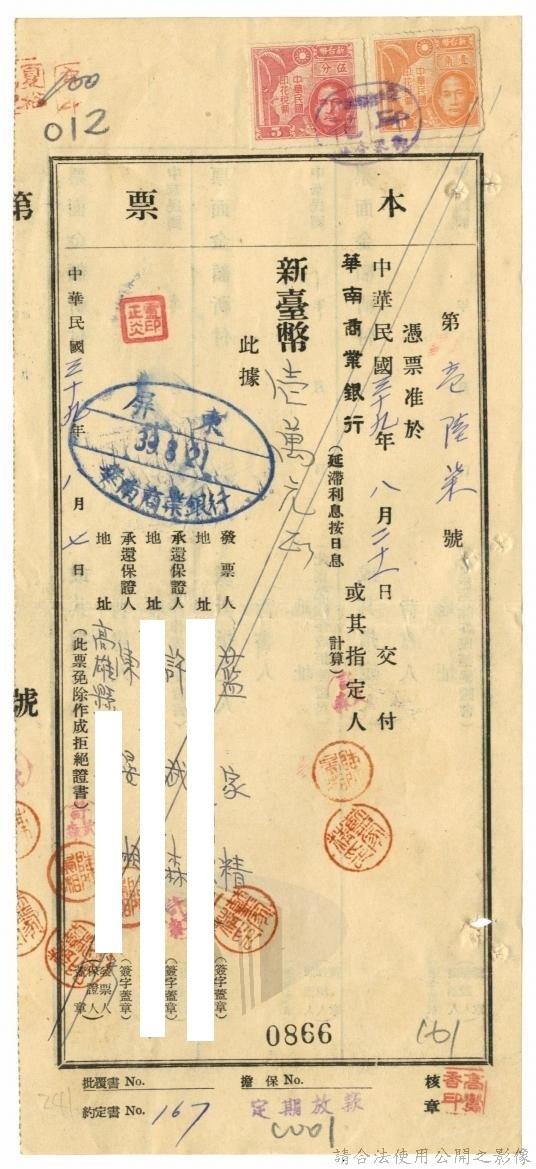 012
新台幣
伍分
中華民國印花稅票
5
新台幣
壹角
中華民國印花稅票
本票
第
第 壱陸柒 號
憑票准於
中華民國三十九年八月二十一日交付
華南商業銀行 或其指定人
(延滯利息按日息 計算)
新臺幣壹萬元正
此據
發票人 藍家精 (簽字蓋章)
地址
承還保證人 許 森 (簽字蓋章)
地址
承還保證人 陳 (簽字蓋章)
地址 高雄縣
中華民國三十九年八月七日
(此票免除作成拒絕證書)
發票人
保證人
蓋章
屏東
39.8.21
華南商業銀行
號
0866
161
批覆書 No.
擔保 No.
核章
約定書 No. 167
定期放款
241
請合法使用公開之影像